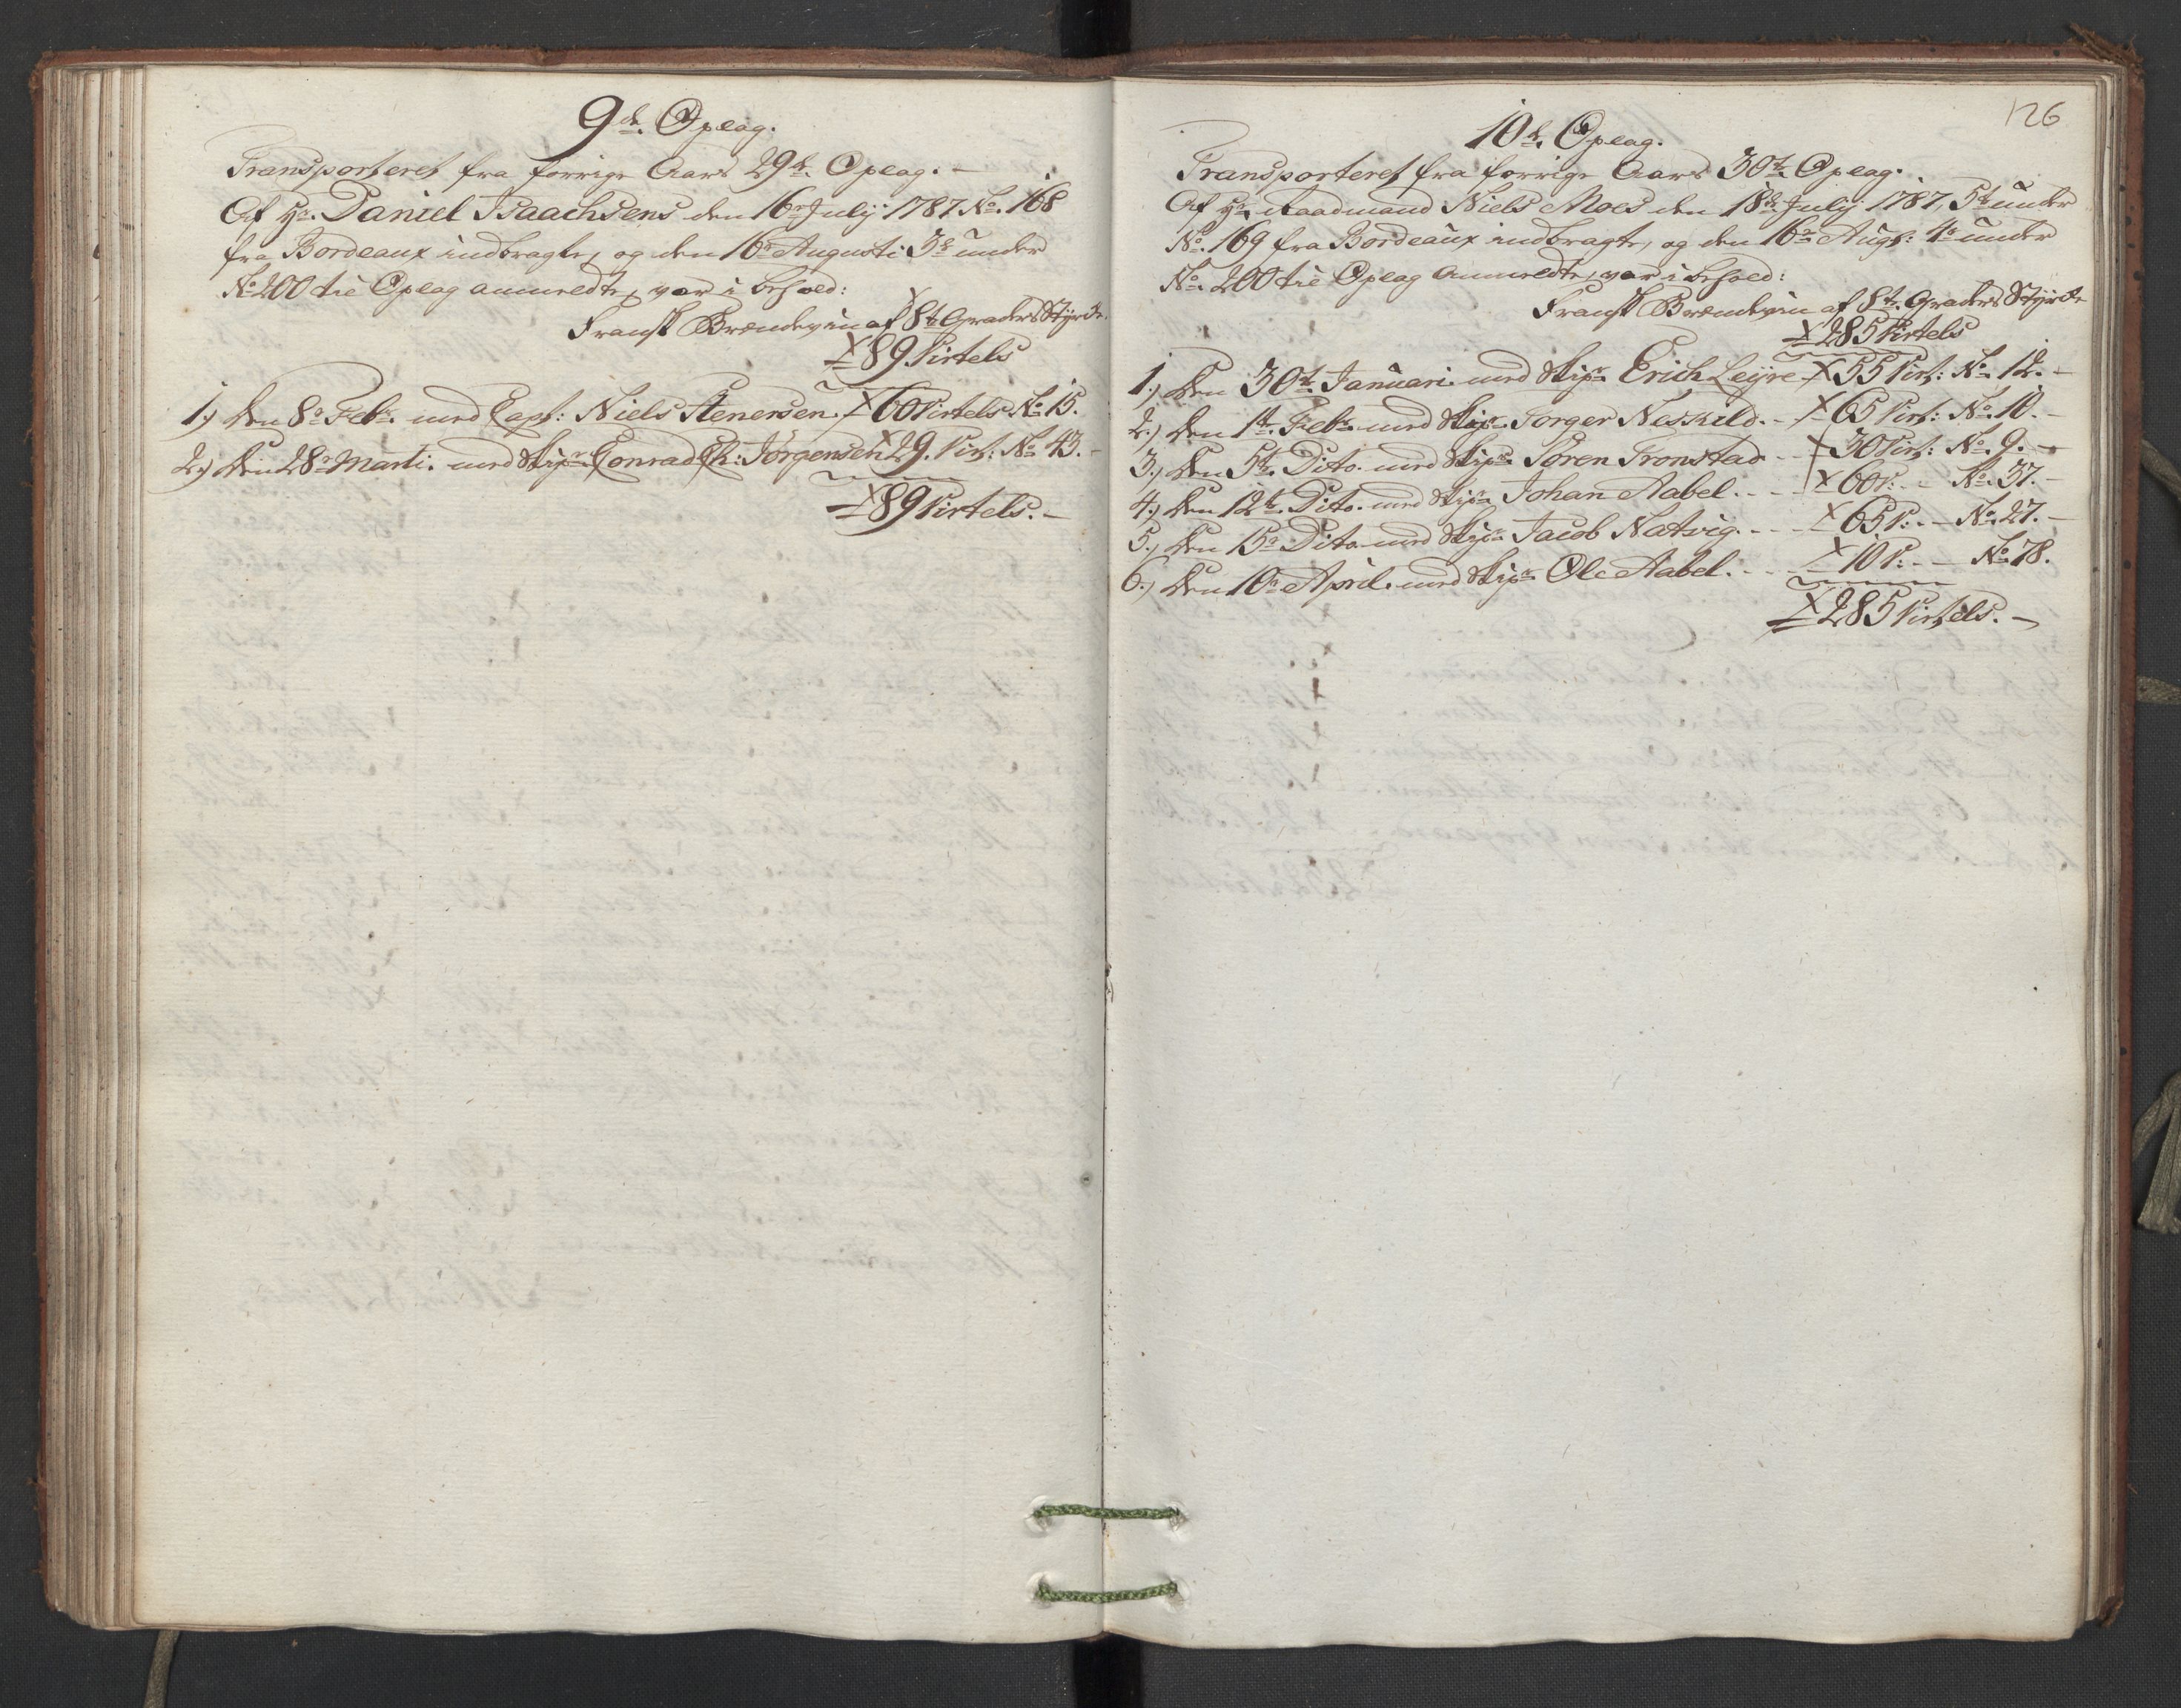 9de. Oplag.
Transporteret fra forrige Aars 29de. Oplag. -
Af Hr. Daniel Isaachsens den 16de July 1787 No. 168
fra Bordeaux indbragte, og den 16de Augusti 3o under
No 200 til Oplag anmeldte, var i behold:
Fransk Brændeviin af 8te Graders Styrke.
x 89 Virtels
1.) den 8de Febr. med Capt: Niels Stenersen. x 60 Virtels No 15.
2.) den 28de Marti. med Skipr Conrad Ch: Jørgensen x 29. Virt: No 43. -
x 89 Virtels. -
126
10de. Oplag.
Transporteret fra forrige Aars 30te. Oplag.
Af Hr. Raadmand Niels Moes den 18de July 1787, 5te under
No. 169 fra Bordeaux indbragte, og den 16de Aug: 4o under
No. 200 til Oplag anmeldte, var i behold:
Fransk Brændeviin af 8te. Graders Styrke
x 285 Virtels
1.) den 30te. Januari. med Skipr Erich Leyre x 55 Virt: No. 12. -
2.) den 1te. Febr. med Skipr. Torger Neskild. - x 65 Virt: No. 10. -
3.) den 5te. Dito. med Skipr. Søren Tronstad - - x 30 Virt: No. 9. -
4.) den 12te. Dito. med Skipr Johan Aabel. - - - x 60 V: - No. 37. -
5.) den 15de Dito med Skipr Jacob Natvig. - - - x 65 V: - No. 27. -
6.) den 10de April. med Skipr Ole Aabel. - - - x 10 V: - No. 78.
x 285 Virtels. -